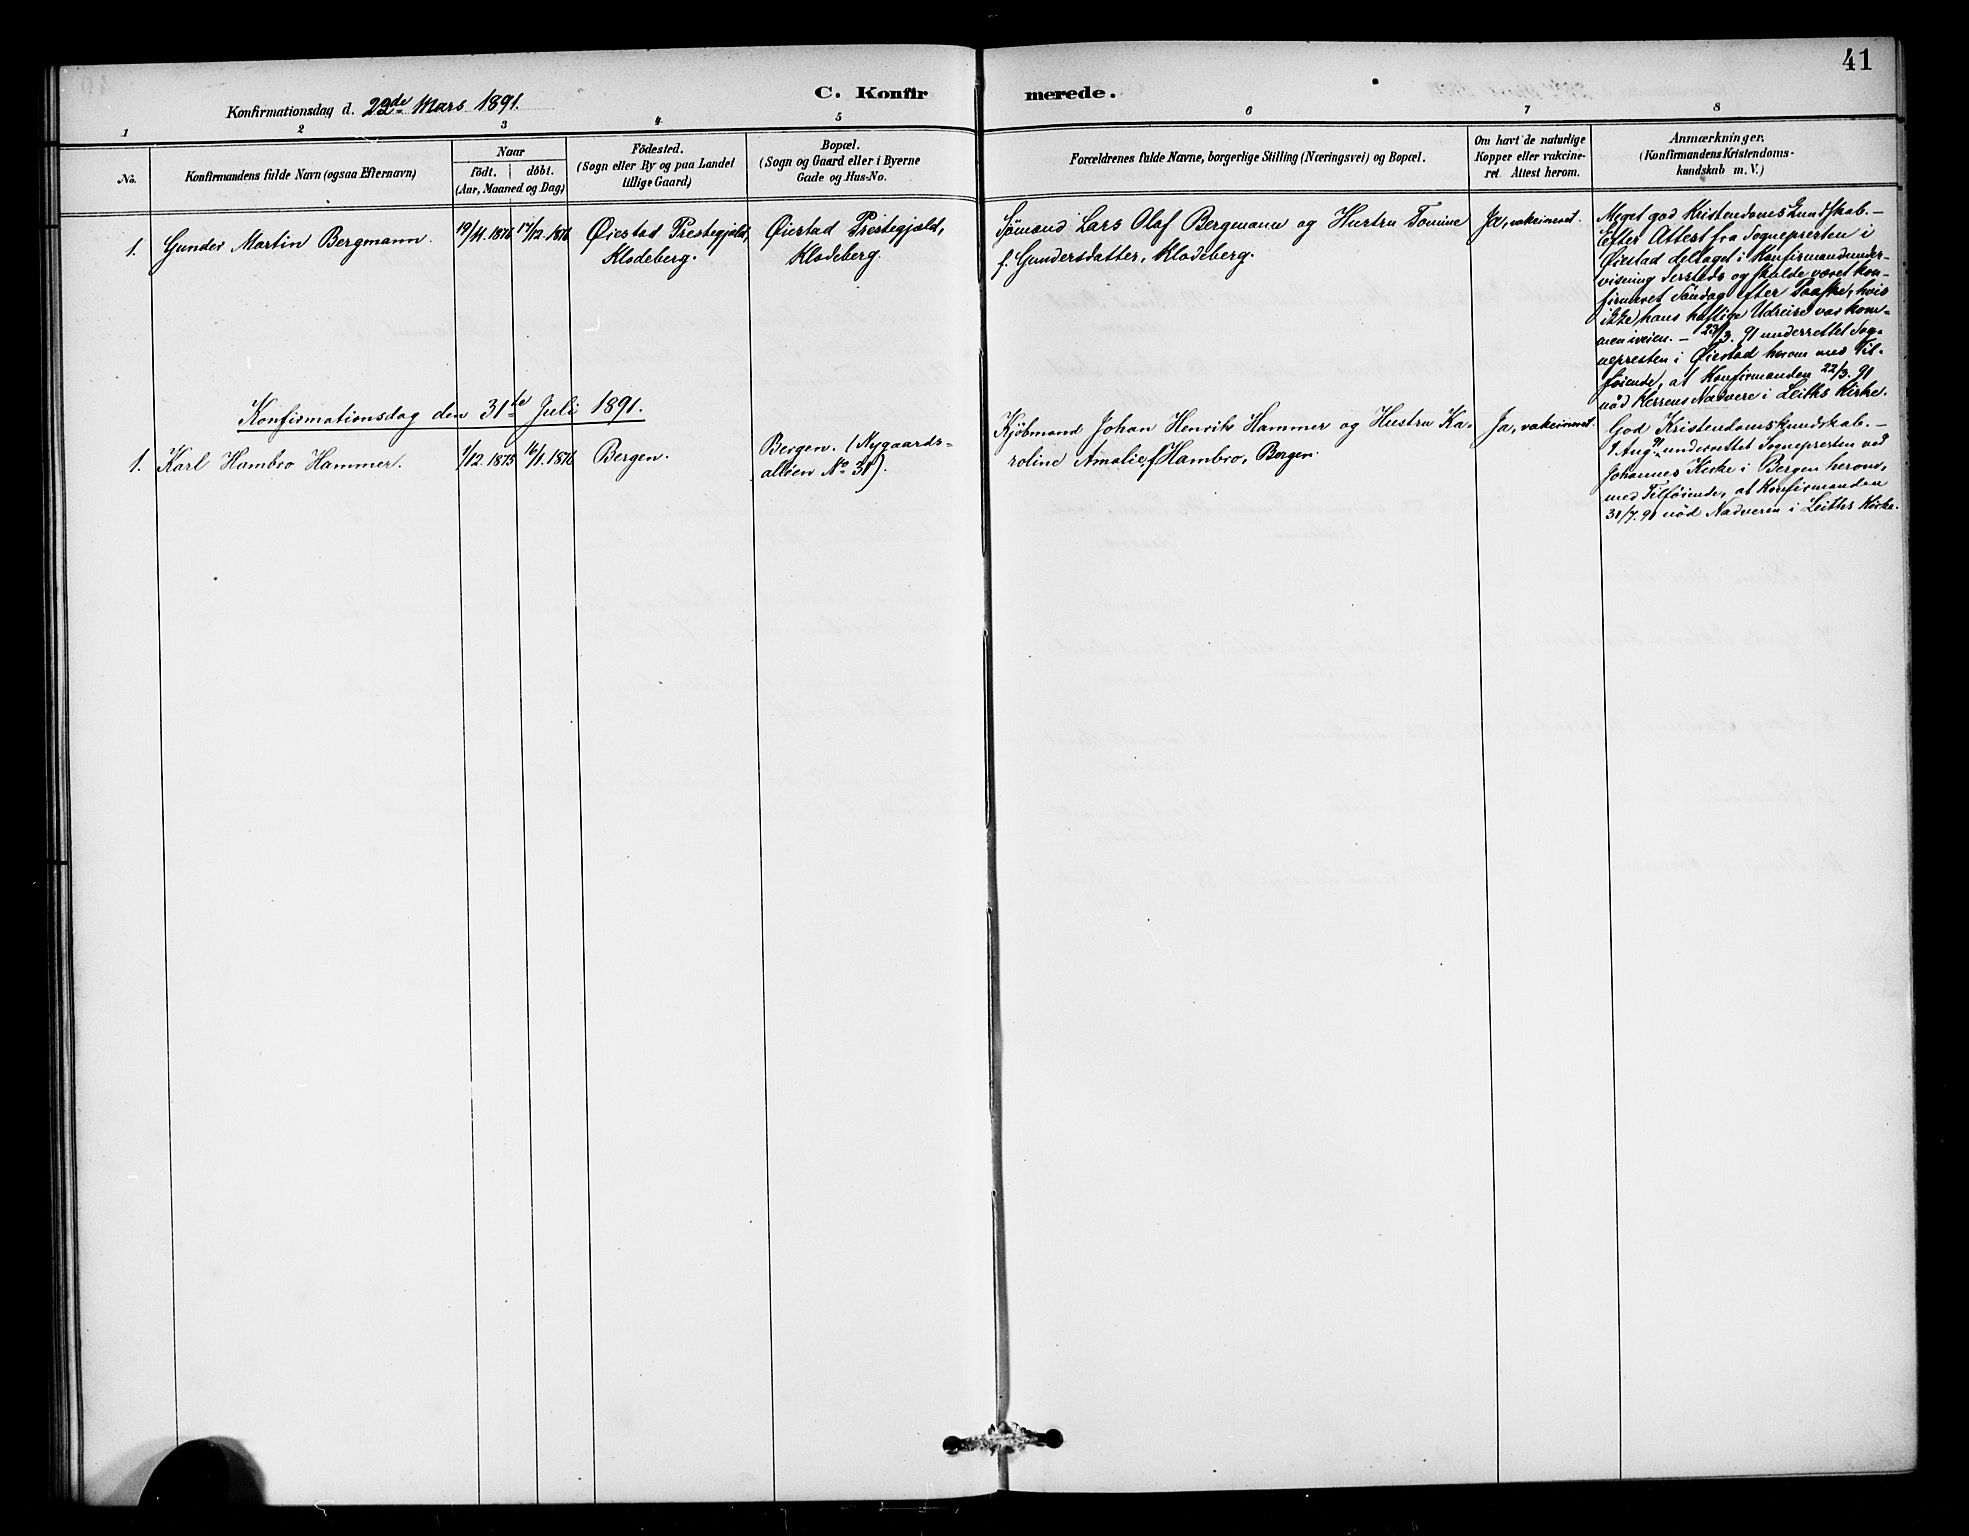 41
C. Konfirmerede.
Konfirmationsdag d. 22de Mars 1891.
1 2 3 4 5 6 7 8
No.
Konfirmandens fulde Navn (ogsaa Efternavn)
Naar
födt. döbt.
(Aar, Maaned og Dag)
Födested.
(Sogn eller By og paa Landet
tillige Gaard)
Bopæl.
(Sogn og Gaard eller i Byerne
Gade og Hus-No.
Forældrenes fulde Navne, borgerlige Stilling (Næringsvei) og Bopæl.
Om havt de naturlige
Kopper eller vakcine-
ret. Attest herom.
Anmærkninger.
(Konfirmandens Kristendoms-
kundskab m. V.)
1. Gunder Martin Bergmann.
19/11. 1876 17/12. 1876
Øiestad Prestegjæld,
Klodeberg.
Øiestad Prestegjæld,
Klodeberg.
Sømand Lars Olaf Bergmann og Hustru Tomine
f. Gundersdatter, Klodeberg.
Ja, vakcineret.
Meget god Kristendomskundskab.-
Efter Attest fra Sognepresten i
Øiestad deltaget i Konfirmandunder-
visning dersteds og skulde været kon-
firmeret Søndag efter Paaske, hvis
ikke hans hastige Udreise var kom-
men iveien. - 23/3. 91 underrettet Sog-
nepresten i Øiestad herom med Til-
føiende, at Konfirmanden 22/3. 91
nød Herrens Nadvere i Leiths Kirke.
Konfirmationsdag den 31te Juli 1891.
1. Karl Hambro Hammer.
1/12. 1875 16/1. 1876
Bergen.
Bergen. (Nygaards-
alléen No 31).
Kjøbmand Johan Henrik Hammer og Hustru Ka-
roline Amalie f. Hambro, Bergen.
Ja, vakcineret.
God Kristendomskundskab. -
1 Aug. 91 underrettet Sognepresten ved
Johannes Kirke i Bergen herom,
med Tilføiende, at Konfirmanden
31/7. 91 nød Nadveren i Leiths Kirke.